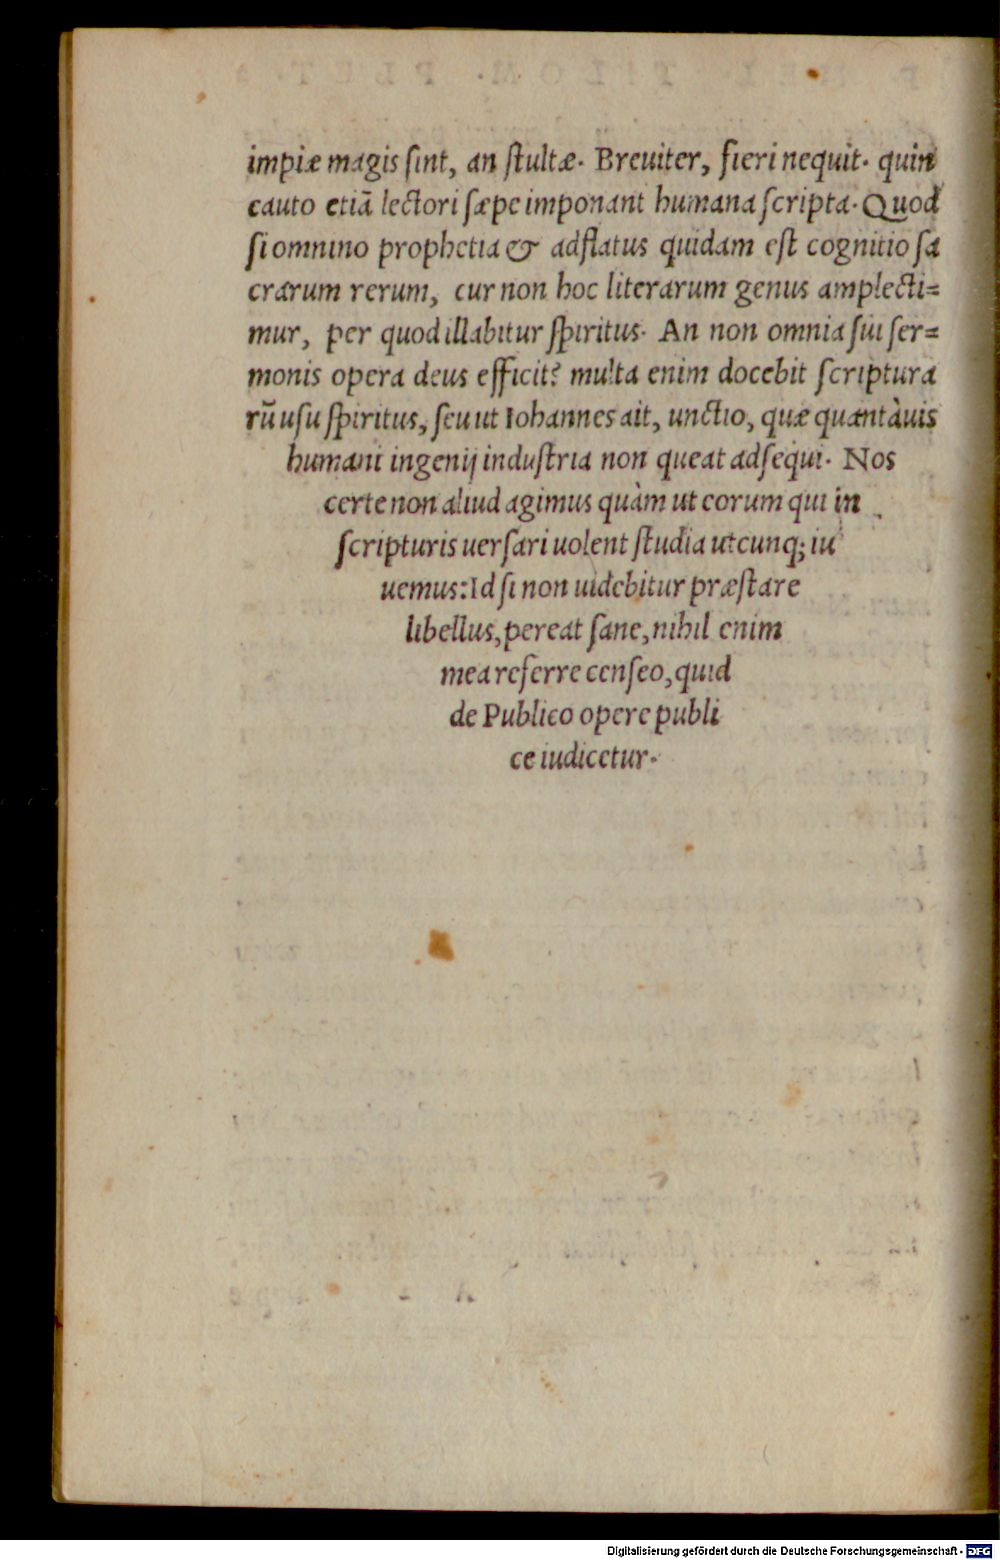 impiæ magis ſint, an ſtultæ. Breuiter, fieri nequit. quin
cauto etiã lectori ſæpe imponant humana ſcripta. Quod
ſi omnino prophetia & adflatus quidam eſt cognitio ſa
crarum rerum, cur non hoc literarum genus amplecti=
mur, per quod illabitur ſpiritus. An non omnia ſui ſer=
monis opera deus efficit? multa enim docebit ſcriptura
rũ uſu ſpiritus, ſeu ut Iohannes ait, unctio, quæ quantàuis
humani ingenij induſtria non queat adſequi. Nos
certe non aliud agimus quàm ut eorum qui in
ſcripturis uerſari uolent ſtudia utcunq; iu
uemus: Id ſi non uidebitur præſtare
libellus, pereat ſane, nihil enim
mea referre cenſeo, quid
de Publico opere publi
ce iudicetur.
Digitalisierung gefördert durch die Deutsche Forschungsgemeinschaft - DFG